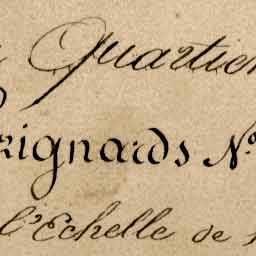 Quartier
rignards No
l'Echelle de